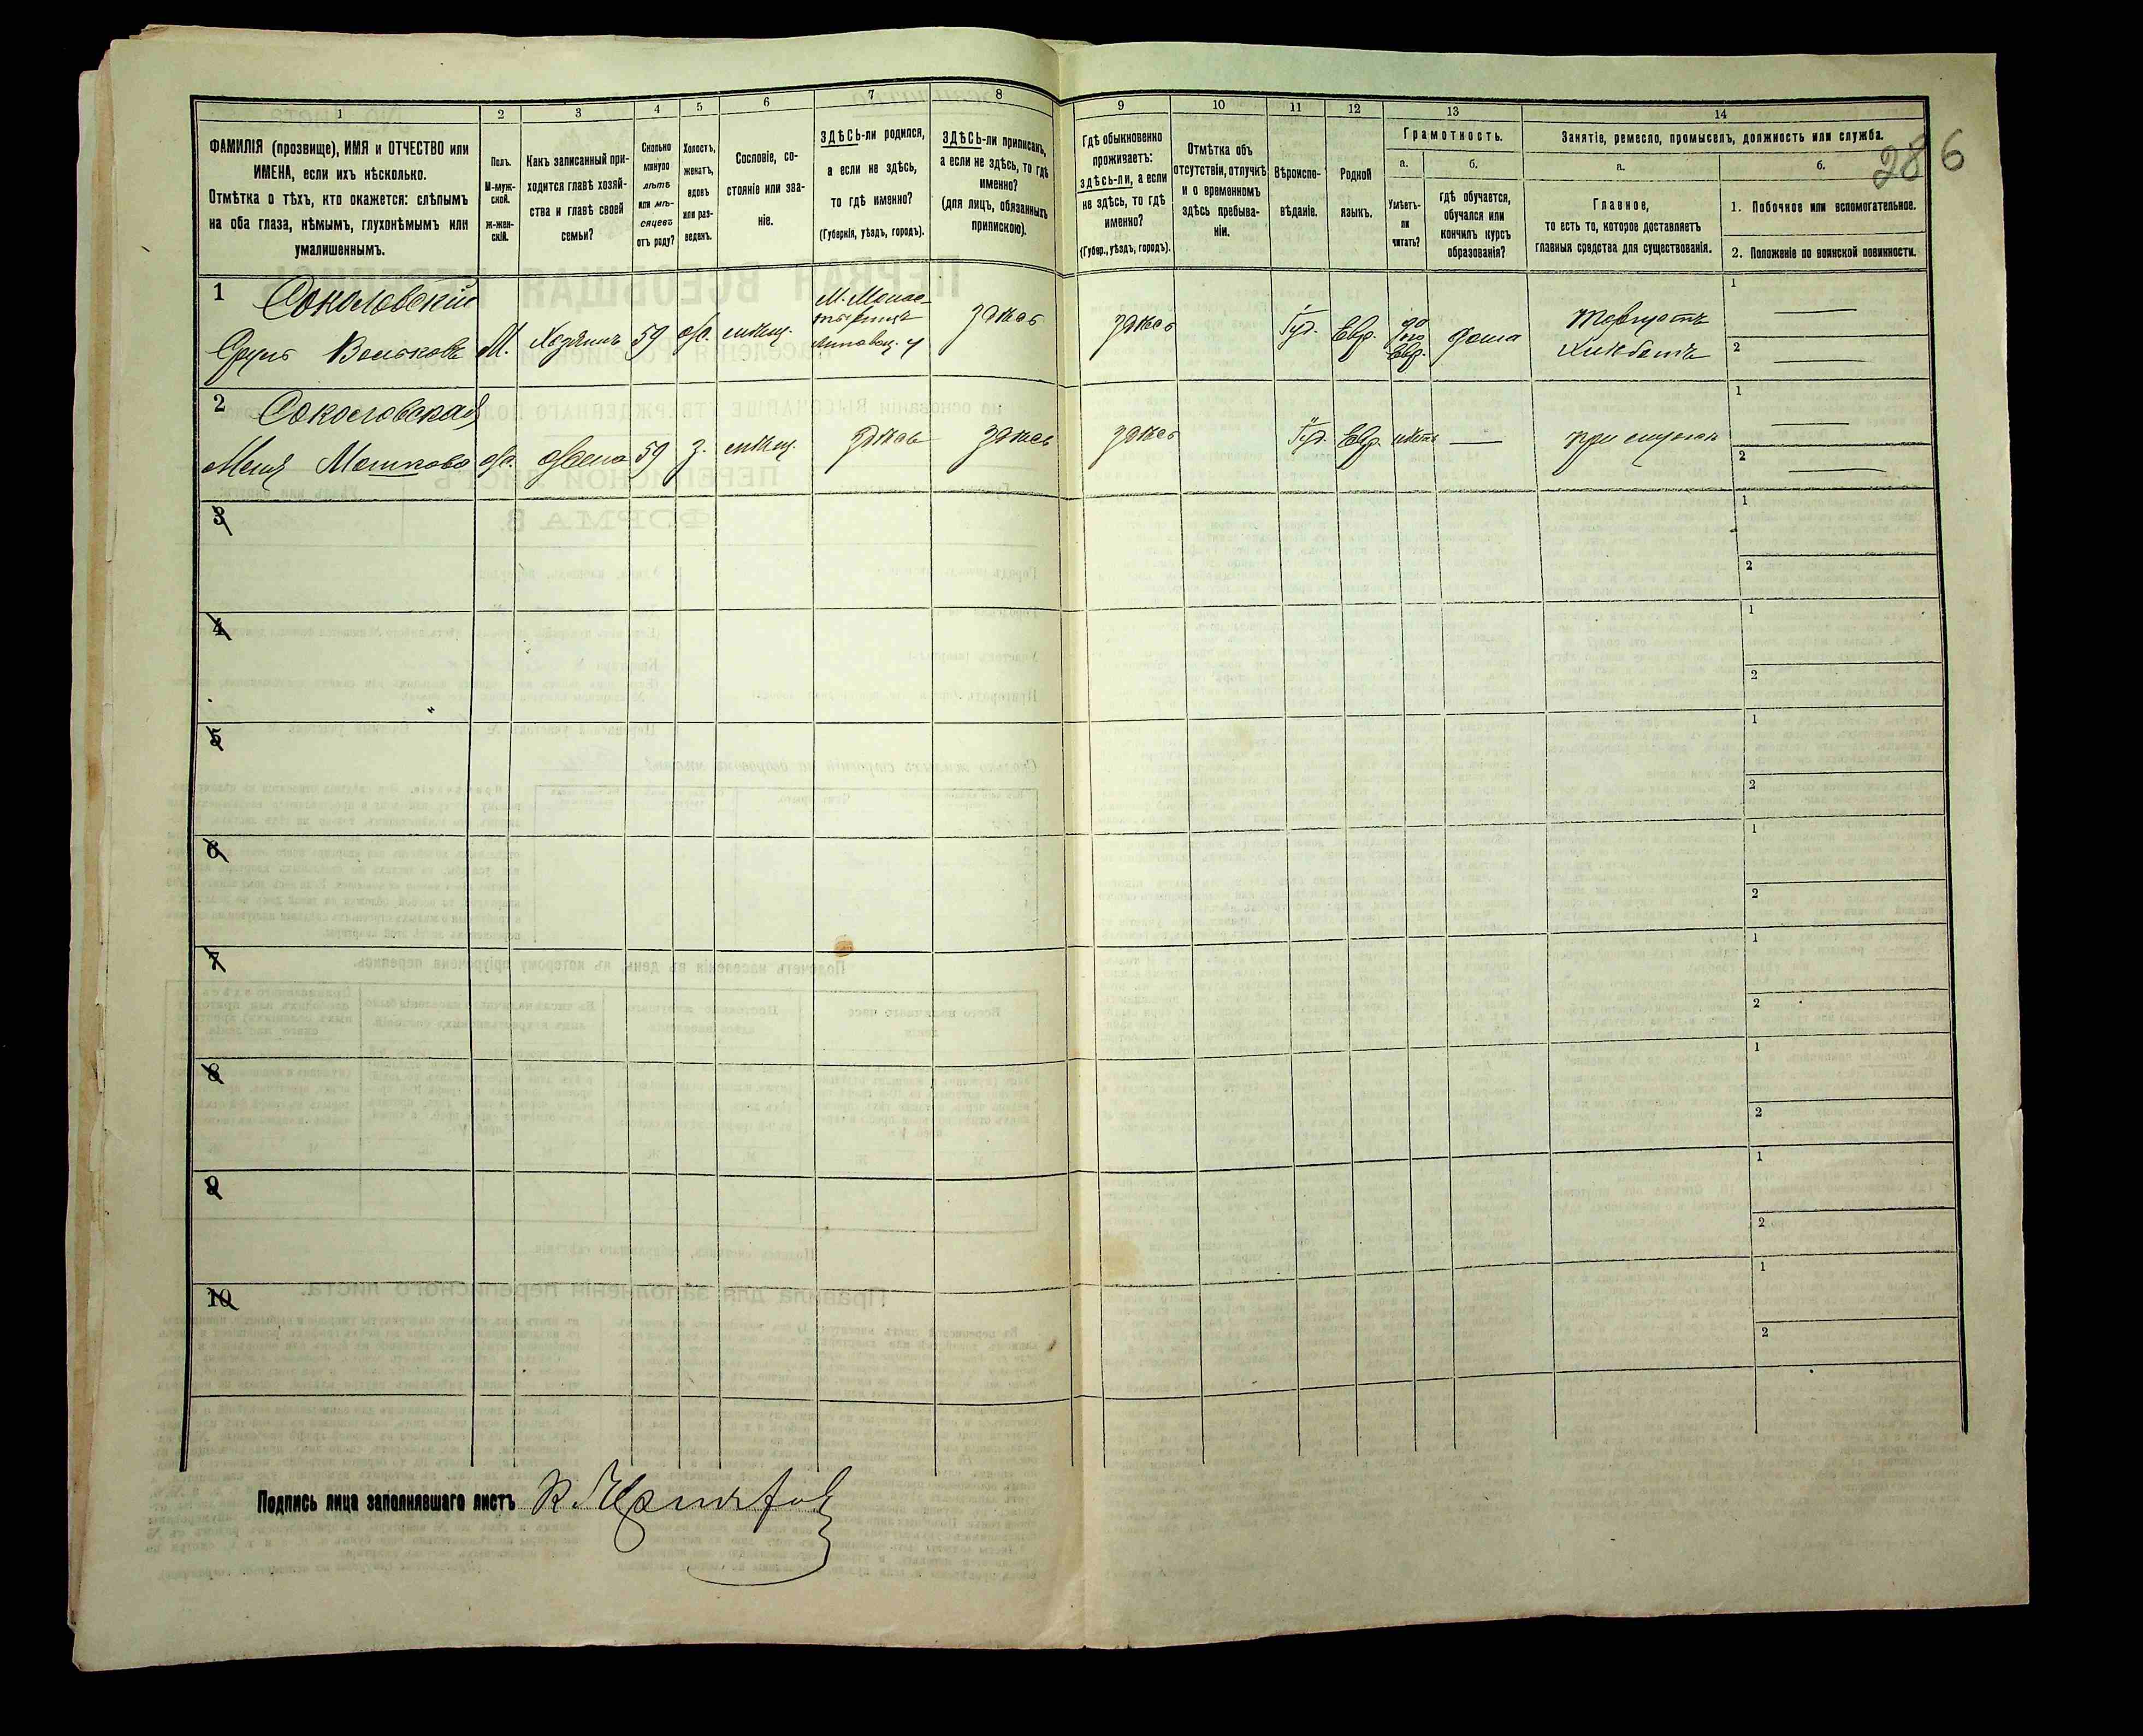 1
2
3
4
5
6
7
8
9
10
11
12
13
14
ФАМИЛІЯ (прозвище), ИМЯ и ОТЧЕСТВО или
ИМЕНА, если ихъ нѣсколько.
Отмѣтка о тѣхъ, кто окажется: слѣпымъ
на оба глаза, нѣмымъ, глухонѣмымъ или
умалишеннымъ.
Полъ.
М-муж-
ской.
Ж-жен-
скій.
Какъ записанный при-
ходится главѣ хозяй-
ства и главѣ своей
семьи?
Сколько
минуло
лѣтъ
или мѣ-
сяцевъ
отъ роду?
Холостъ,
женатъ,
вдовъ
или раз-
веденъ.
Сословіе, со-
стояніе или зва-
ніе.
ЗДѢСЬ-ли родился,
а если не здѣсь,
то гдѣ именно?
(Губернія, уѣздъ, городъ).
ЗДѢСЬ-ли приписанъ,
а если не здѣсь, то гдѣ
именно?
(для лицъ, обязанныхъ
припискою).
Гдѣ обыкновенно
проживаетъ:
здѣсь-ли, а если
не здѣсь, то гдѣ
именно?
(Губер., уѣздъ, городъ).
Отмѣтка объ
отсутствіи, отлучкѣ
и о временномъ
здѣсь пребыва-
ніи.
Вѣроиспо-
вѣданіе.
Родной
языкъ.
Грамотность.
а.
Умѣетъ-
ли
читать?
б.
гдѣ обучается,
обучался или
кончилъ курсъ
образованія?
Занятіе, ремесло, промыселъ, должность или служба.
а.
Главное,
то есть то, которое доставляетъ
главныя средства для существованія.
б.
1. Побочное или вспомогательное.
2. Положеніе по воинской повинности.
286
1 Соколовскій
Сруль Вольковъ
М.
Хозяинъ
59
ж.
мѣщ.
М. Монас-
тырище
Липовец. у
здѣсь
здѣсь
Іуд.
Евр.
да
по
Евр.
дома
Торгуетъ
хлѣбомъ
1
2
2 Соколовская
Меня Мошкова
ж.
жена
59
з.
мѣщ.
здѣсь
здѣсь
здѣсь
Іуд.
Евр.
нѣтъ
при мужѣ
1
2
3
1
2
4
1
2
5
1
2
6
1
2
7
1
2
8
1
2
9
1
2
10
1
2
Подпись лица заполнявшаго листъ